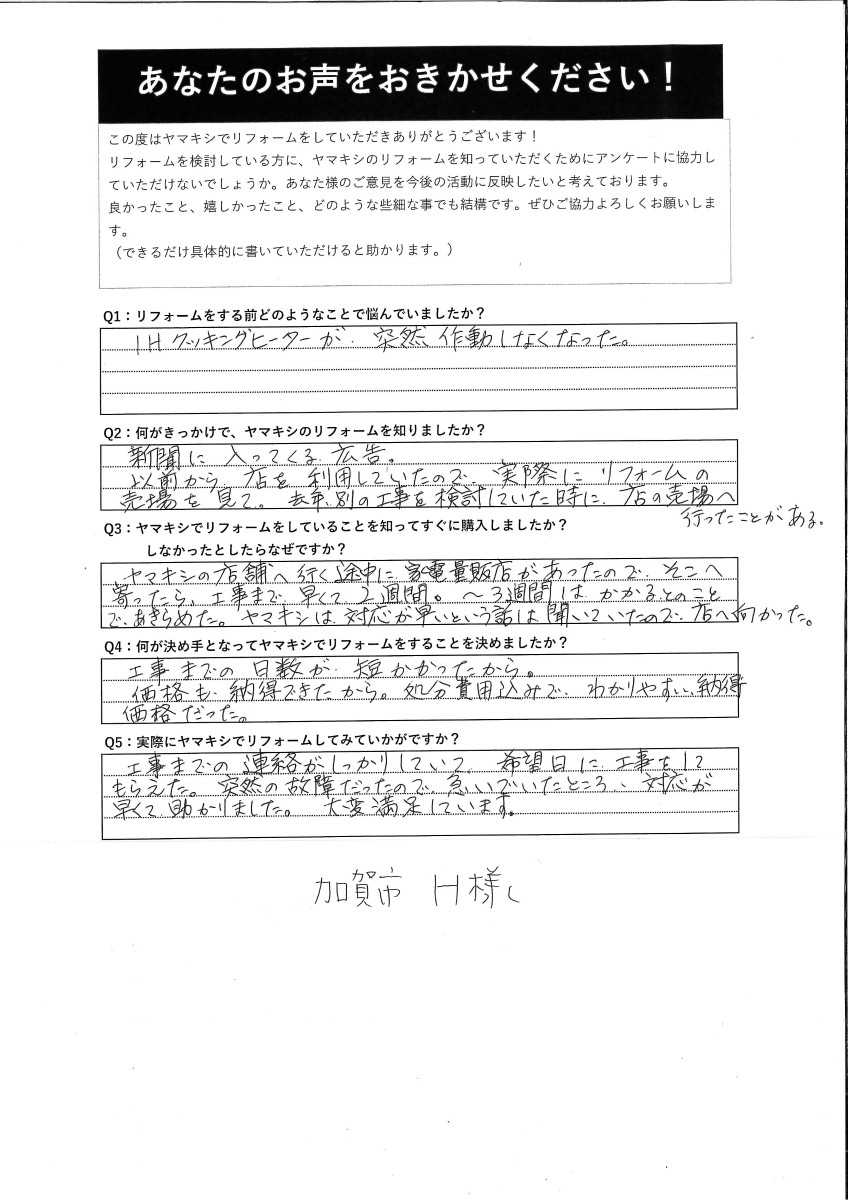 あなたのお声をおきかせください！
この度はヤマキシでリフォームをしていただきありがとうございます！
リフォームを検討している方に、ヤマキシのリフォームを知っていただくためにアンケートに協力し
ていただけないでしょうか。あなた様のご意見を今後の活動に反映したいと考えております。
良かったこと、嬉しかったこと、どのような些細な事でも結構です。ぜひご協力よろしくお願いしま
す。
（できるだけ具体的に書いていただけると助かります。）
Q1：リフォームをする前どのようなことで悩んでいましたか？
IHクッキングヒーターが、突然、作動しなくなった。
Q2：何がきっかけで、ヤマキシのリフォームを知りましたか？
新聞に入ってくる広告。
以前から、店を利用していたので、実際にリフォームの
売場を見て。去年、別の工事を検討していた時に、店の売場へ
行ったことがある。
Q3：ヤマキシでリフォームをしていることを知ってすぐに購入しましたか？
しなかったとしたらなぜですか？
ヤマキシの店舗へ行く途中に家電量販店があったので、そこへ
寄ったら、工事まで、早くて2週間。～3週間はかかるとのこと
で、あきらめた。ヤマキシは、対応が早いという話は聞いていたので、店へ向かった。
Q4：何が決め手となってヤマキシでリフォームをすることを決めましたか？
工事までの日数が、短かかったから。
価格も、納得できたから。処分費用込みで、わかりやすい、納得
価格だった。
Q5：実際にヤマキシでリフォームしてみていかがですか？
工事までの連絡がしっかりしていて、希望日に、工事をして
もらえた。突然の故障だったので、急いでいたところ、対応が
早くて、助かりました。大変満足しています。
加賀市 H様